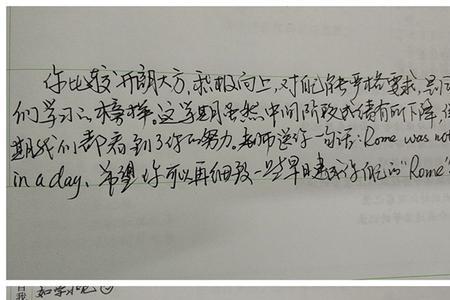 你比较开朗大方,积极向上,对自己能严格要求,是
们学习的榜样。这学期虽然中间阶段成绩有所下降,
期我们都看到了你的努力。老师送你一句话:Rome was not
in a day, 希望你可以再细致一些早日建成你自己的"Rome"